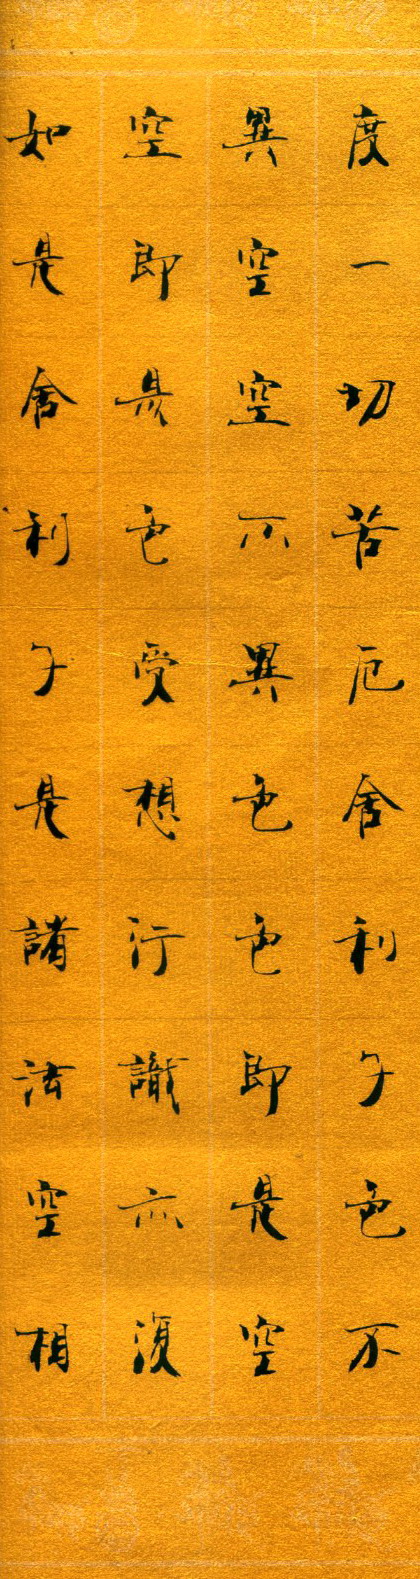 度一切苦厄舍利子色不
異空空不異色色即是空
空即是色受想行識亦復
如是舍利子是諸法空相